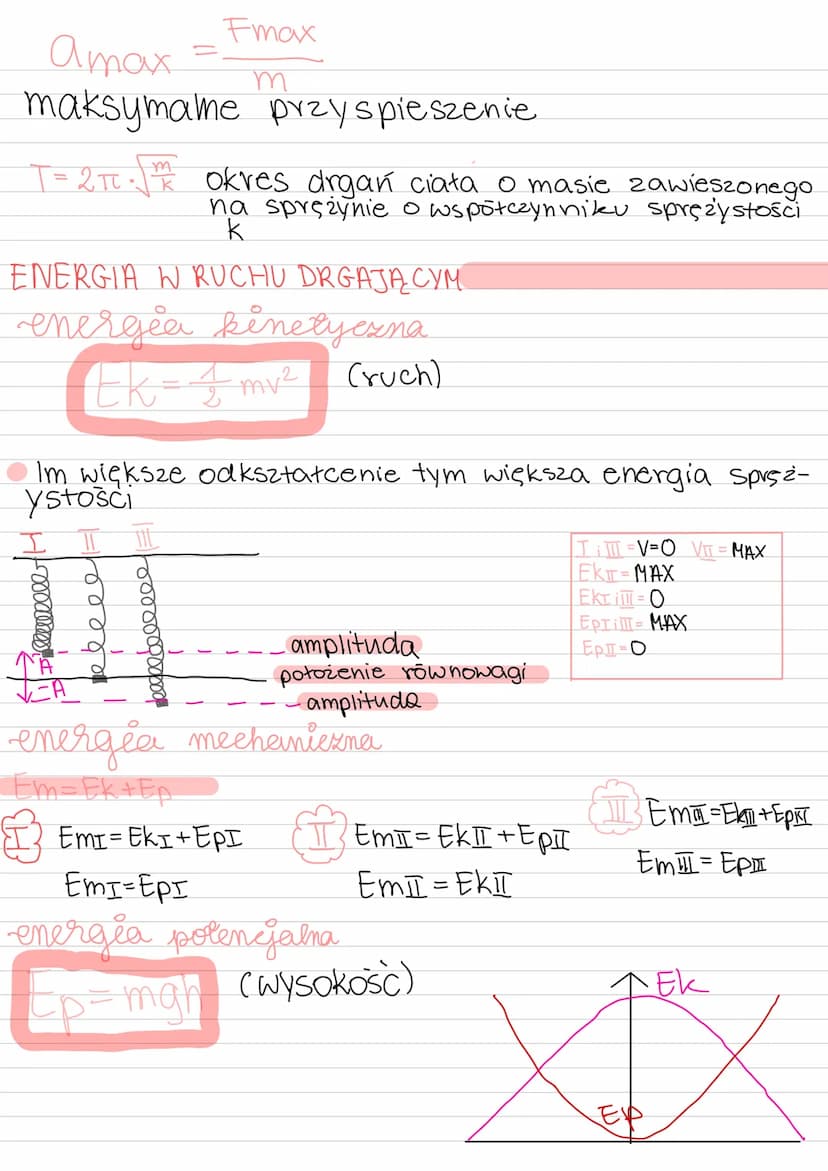 amax = Fmax / m
maksymalne przyspieszenie
T = 2π · √(m/k) okres drgań ciała o masie zawieszonego
na sprężynie o współczynniku sprężystości
k
ENERGIA W RUCHU DRGAJĄCYM
energia kinetyczna
Ek = 1/2 mv² (ruch)
Im większe odkształcenie tym większa energia spręż-
ystości
I II III
I i III = V=0 VII = MAX
EkII = MAX
EkI i III = 0
EpI i III = MAX
EpII = 0
amplituda
A
położenie równowagi
-A
amplituda
energia mechaniczna
Em = Ek + Ep
I EmI = EkI + EpI
EmI = EpI
II EmII = EkII + EpII
EmII = EkII
III EmIII = EkIII + EpIII
EmIII = EpIII
energia potencjalna
Ep = mgh (wysokość)
Ek
Ep